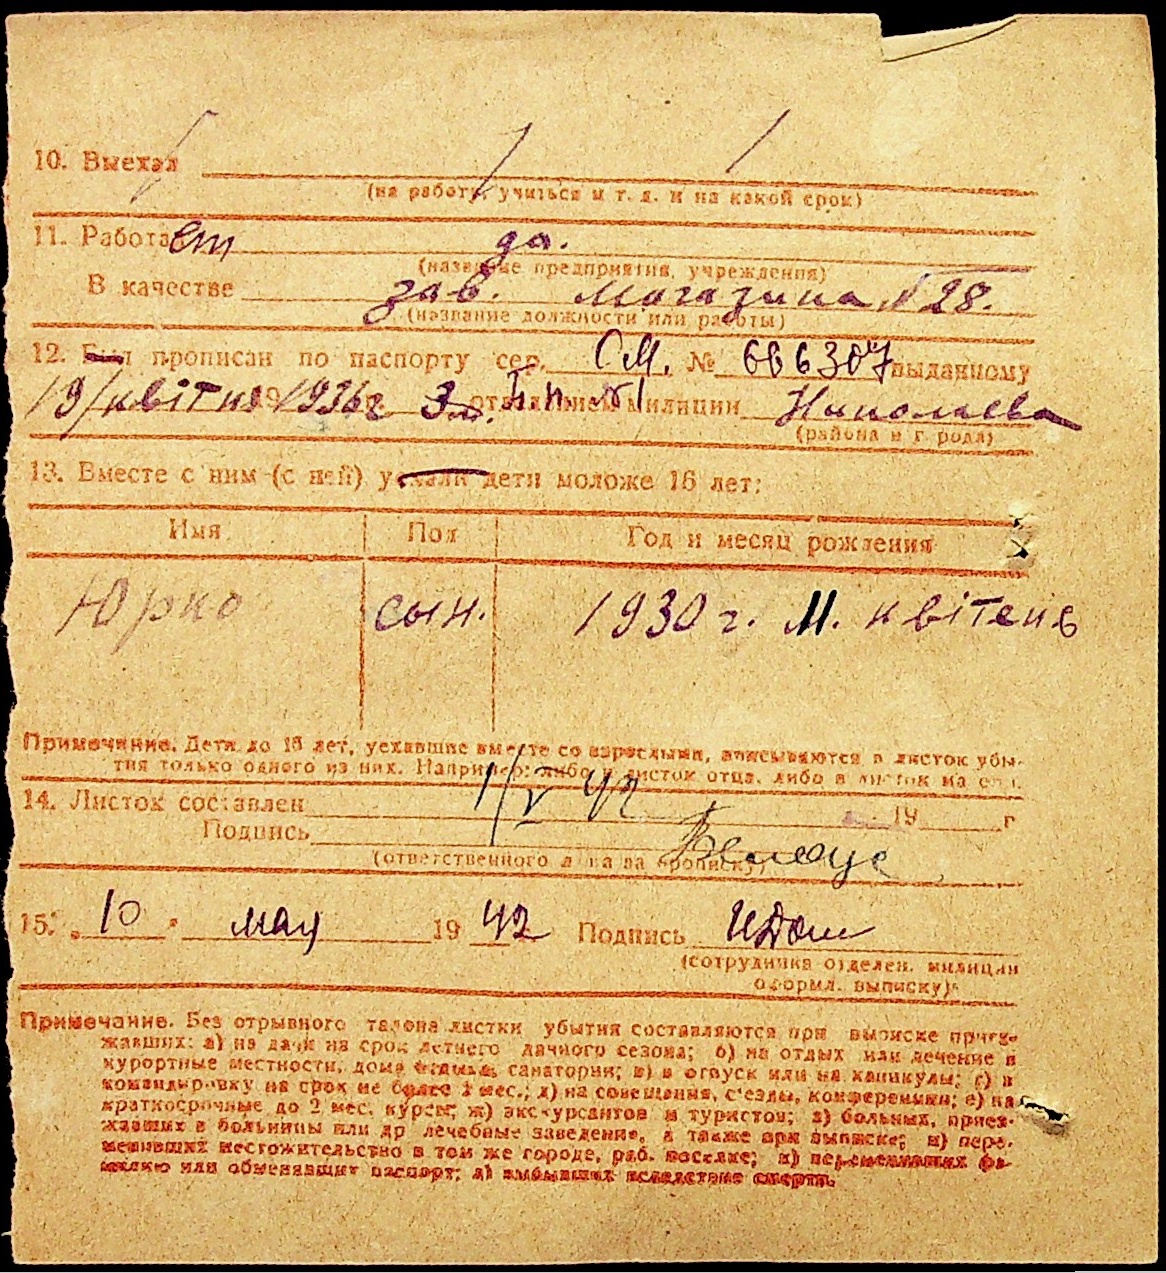 10. Выехал
(на работу, учиться и т. д. и на какой срок)
11. Работает да.
(название предприятия, учреждения)
В качестве зав. магазина № 28.
(название должности или работы)
12. Был прописан по паспорту сер. СМ. № 666307 выданному
19/квітня 1936 г 3 отделением милиции Николаева
(района и города)
13. Вместе с ним (с ней) уехали дети моложе 16 лет:
Имя Пол Год и месяц рождения
Юрко сын. 1930 г. М. квітень
Примечание. Дети до 16 лет, уехавшие вместе со взрослыми, вписываются в листок убы-
тия только одного из них. Например: либо в листок отца, либо в листок матери.
14. Листок составлен 1/V 42 19 г
Подпись
(ответственного лица за прописку)
15. „10" мая 1942 Подпись
(сотрудника отделен. милиции
оформл. выписку)
Примечание. Без отрывного талона листки убытия составляются при выписке приез-
жавших: а) на дачи на срок летнего дачного сезона; б) на отдых или лечение в
курортные местности, дома отдыха, санатории; в) в отпуск или на каникулы; г) в
командировку на срок не более 2 мес.; д) на совещания, с'езды, конференции; е) на
краткосрочные до 2 мес. курсы; ж) экскурсантов и туристов; з) больных, приез-
жавших в больницы или др лечебные заведения, а также при выписке; и) пере-
менивших местожительство в том же городе, раб. поселке; к) переменивших фа-
милию или обменявших паспорт; л) выбывших вследствие смерти.